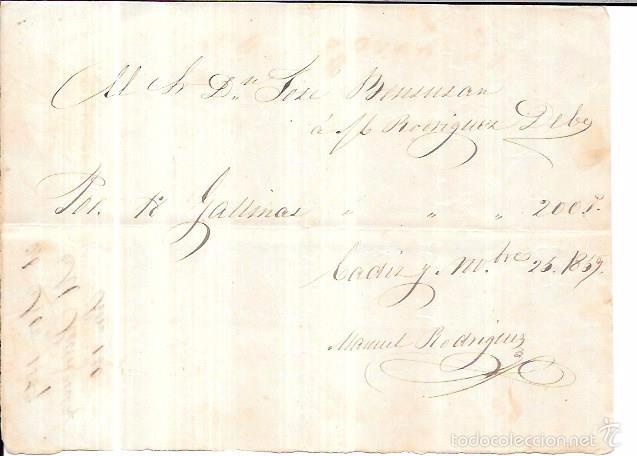 Al Sr Dn José Bensusan
á M. Rodriguez Debe
Por 18 Gallinas " " " 200 r.
Cadiz y Nbre 25. 1859.
Manuel Rodriguez
todocoleccion.net